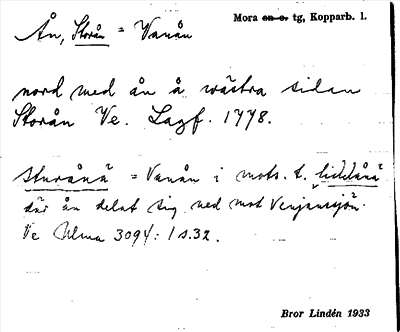 Mora sn o. tg, Kopparb. l.
Ån, Storån = Vanån
nord med ån å wästra sidan
Storån Ve. Lagf. 1778.
Sturånä = Vanån i mots. t. Liddlånä
där ån delat sig ned mot Venjansjön.
Ve Ulma 3094: 1 s. 32.
Bror Lindén 1933